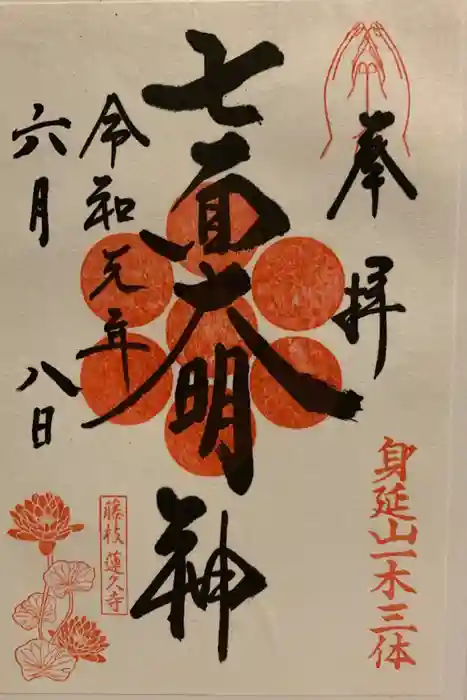 奉拝
身延山一木三体
七面大明神
令和元年
六月八日
藤枝 蓮久寺